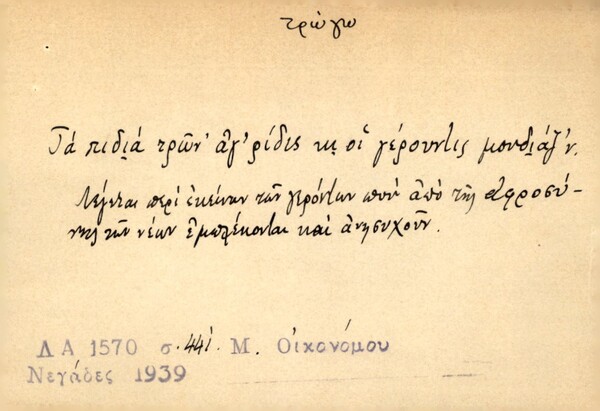 τρώγω
Τά πιδι̬ά τρῶν' ἀγ'ρίδες κι̬ οἱ γέρουντις μουδι̬άζ'ν.
Λέγεται περί ἐκείνων τῶν γερόντων πού ἀπό τῆς ἀφροσύ-
νης τῶν νέων ἐμπλέκονται καί ἀνησυχοῦν.
Λ Α 1570 σ. 441. Μ. Οἰκονόμου
Νεγάδες 1939